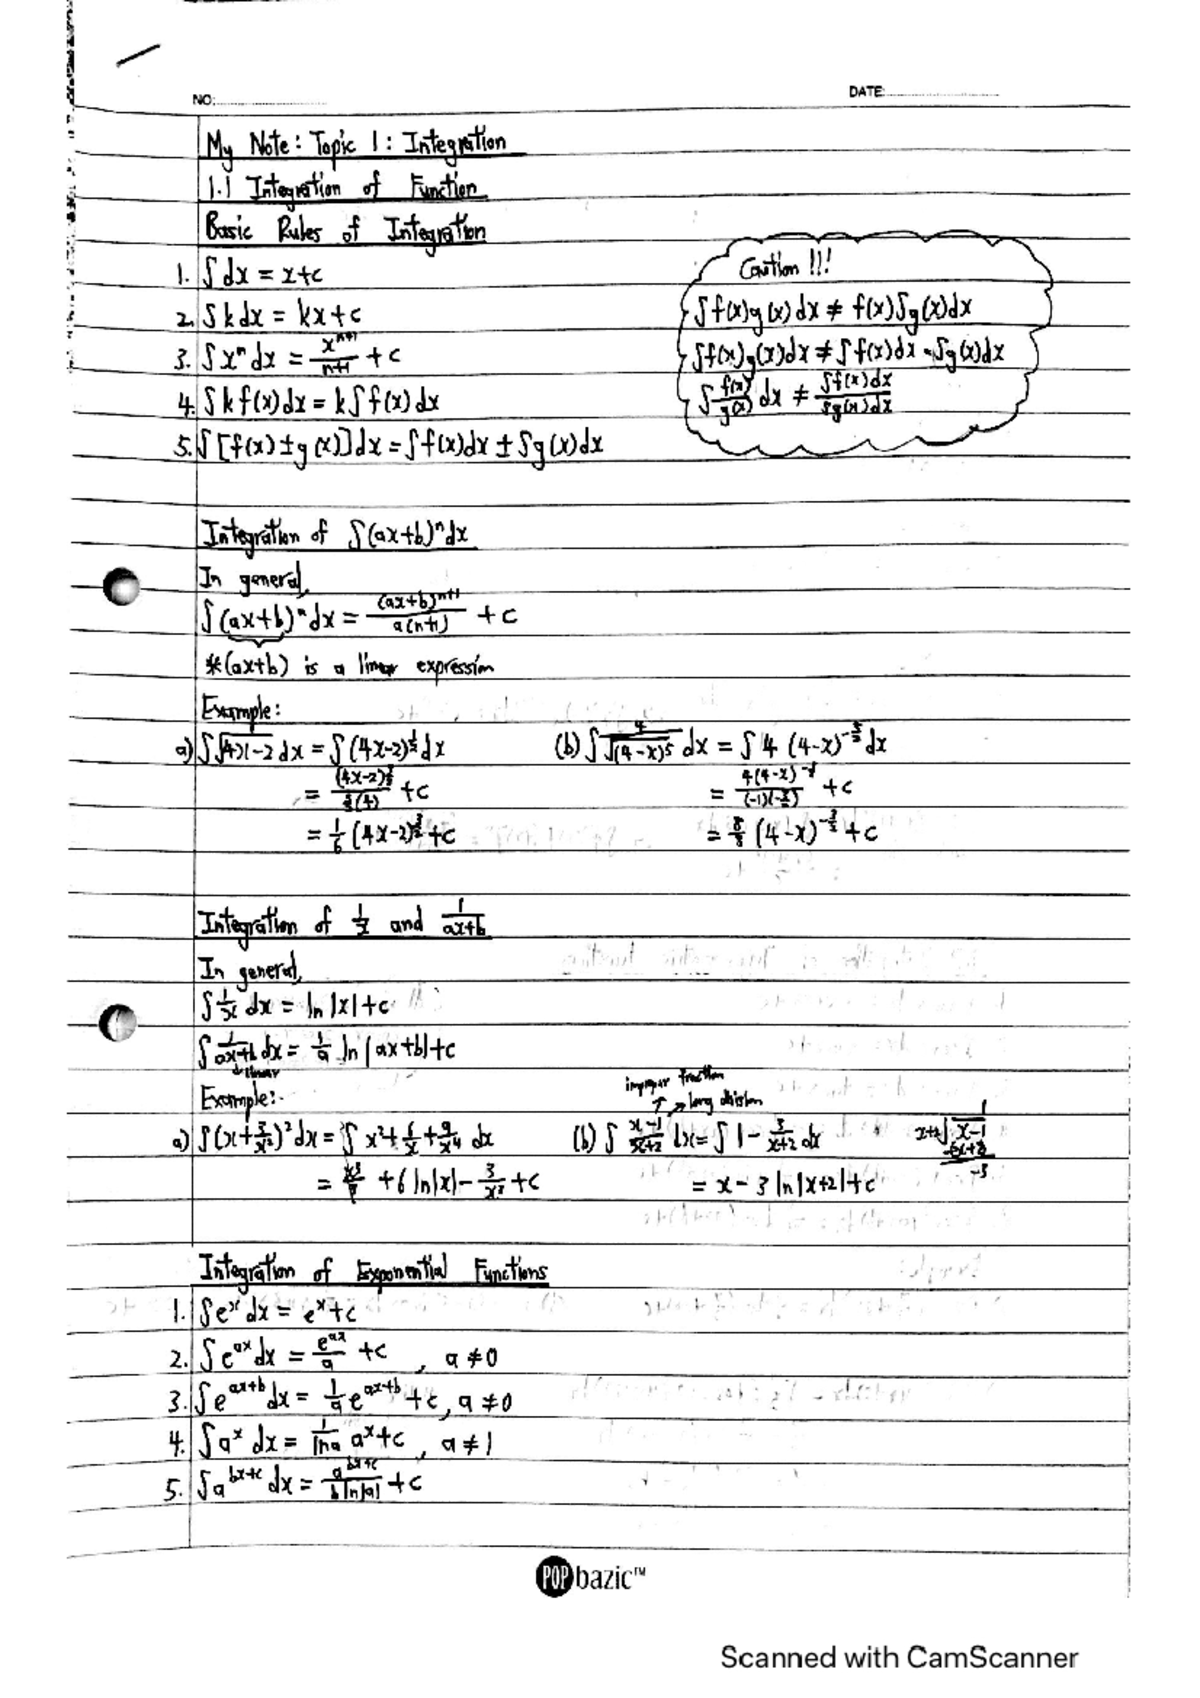 NO:
DATE:
My Note: Topic 1: Integration
1.1 Integration of Function
Basic Rules of Integration
1. ∫dx = x+c
2. ∫k dx = kx+c
3. ∫xⁿ dx = xⁿ⁺¹/n+1 + c
4. ∫k f(x)dx = k∫f(x)dx
5. ∫[f(x)±g(x)]dx = ∫f(x)dx ± ∫g(x)dx
Caution !!!
∫f(x)g(x)dx ≠ f(x)∫g(x)dx
∫f(x)g(x)dx ≠ ∫f(x)dx · ∫g(x)dx
∫f(x)/g(x) dx ≠ ∫f(x)dx/∫g(x)dx
Integration of ∫(ax+b)ⁿdx
In general,
∫(ax+b)ⁿdx = (ax+b)ⁿ⁺¹/a(n+1) + c
*(ax+b) is a linear expression
Example:
a) ∫√4x-2 dx = ∫(4x-2)^½ dx
= (4x-2)^3/2 / 3/2(4) + c
= 1/6 (4x-2)^3/2 + c
(b) ∫4/√(4-x)⁵ dx = ∫4 (4-x)^-5/2 dx
+ c
(4-x)^-3/2 + c
Integration of 1/x and 1/ax+b
In general,
∫1/x dx = ln|x|+c
∫1/ax+b dx = 1/a ln|ax+b|+c
linear
Example:
a) ∫(x+3/x²)² dx = ∫x²+6/x+9/x⁴ dx
= x³/3 + 6 ln|x| - 3/x³ + c
improper fraction
long division
(b) ∫x-1/x+2 dx = ∫1 - 3/x+2 dx
= x - 3 ln|x+2|+c
1
x+2√x-1
-x+2
-3
Integration of Exponential Functions
1. ∫eˣ dx = eˣ+c
2. ∫e^ax dx = e^ax/a + c , a≠0
3. ∫e^ax+b dx = 1/a e^ax+b + c, a≠0
4. ∫aˣ dx = 1/ln a aˣ+c , a≠1
5. ∫a^bx+c dx = a^bx+c/b ln|a| + c
POP bazic™
Scanned with CamScanner